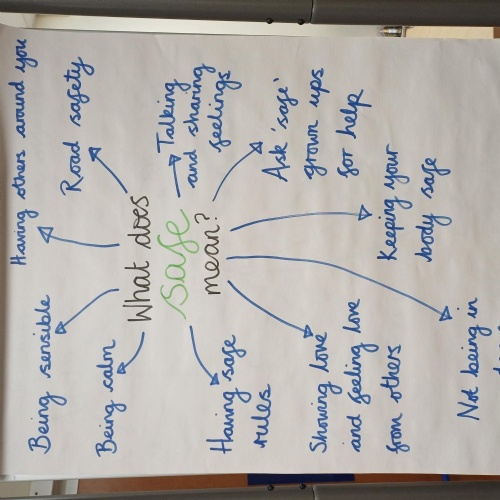 Being sensible
Having others around you
Being calm
Road safety
What does
safe
mean?
Talking
and sharing
feelings
Having safe
rules
Ask 'safe'
grown ups
for help
Showing love
and feeling love
from others
Keeping your
body safe
Not being in